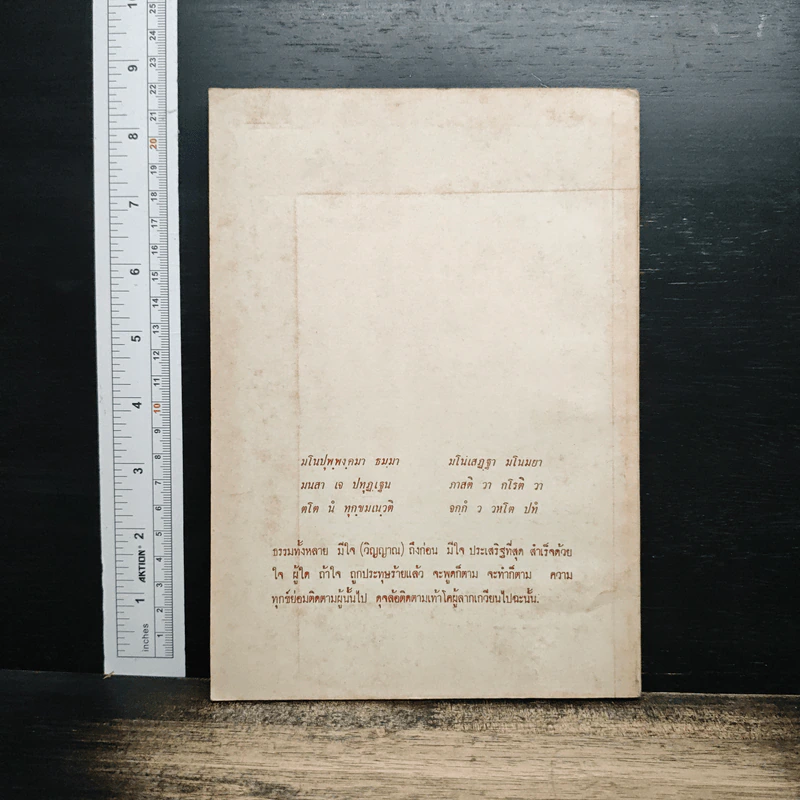 มโนปุพฺพงฺคมา ธมฺมา มโนเสฏฺฐา มโนมยา
มนสา เจ ปทุฏฺเฐน ภาสติ วา กโรติ วา
ตโต นํ ทุกฺขมเนฺวติ จกฺกํ ว วหโต ปทํ
ธรรมทั้งหลาย มีใจ (วิญญาณ) ถึงก่อน มีใจ ประเสริฐที่สุด สำเร็จด้วย
ใจ ผู้ใด ถ้าใจ ถูกประทุษร้ายแล้ว จะพูดก็ตาม จะทำก็ตาม ความ
ทุกข์ย่อมติดตามผู้นั้นไป ดุจล้อติดตามเท้าโคผู้ลากเกวียนไปฉะนั้น.
inches
AKTION®
1 2 3 4 5 6 7 8 9 10
1 2 3 4 5 6 7 8 9 10 11 12 13 14 15 16 17 18 19 20 21 22 23 24 25